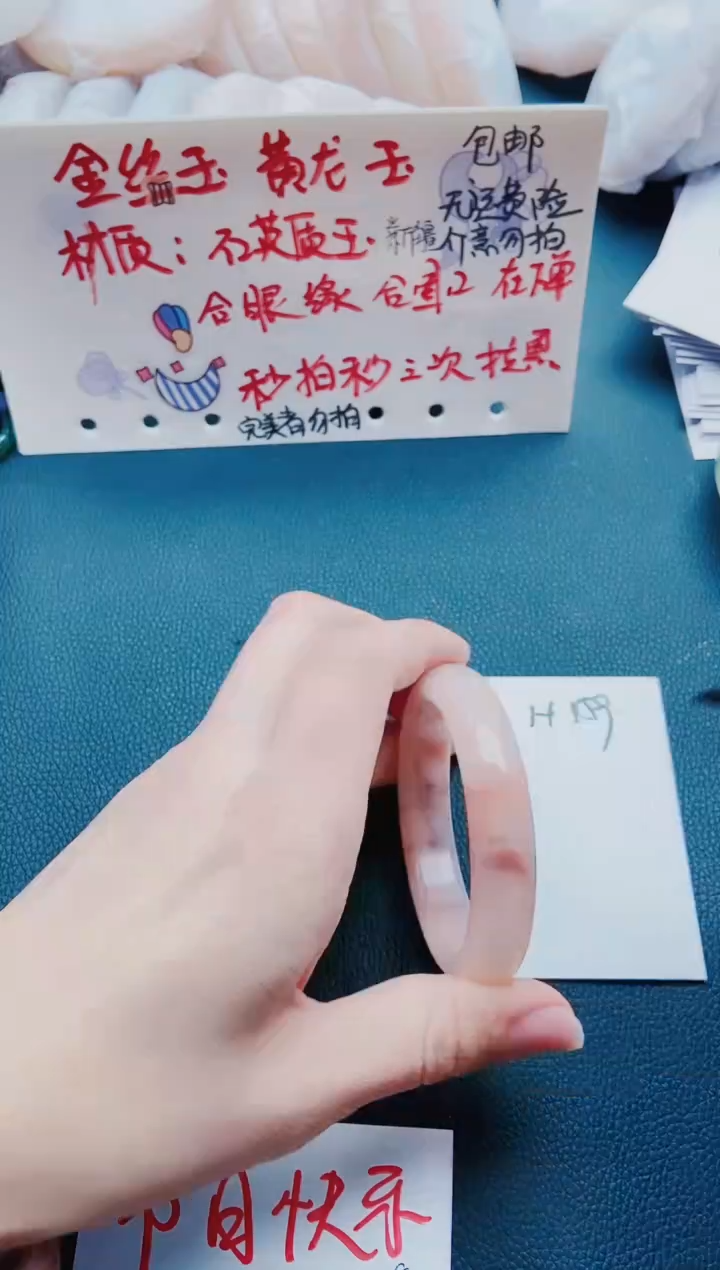 金丝玉 黄龙玉 包邮
无运费险
材质：石英质玉 新疆 介意勿拍
合眼缘 合宜口 在下单
秒拍秒三次拉黑
完美者勿拍
节日快乐